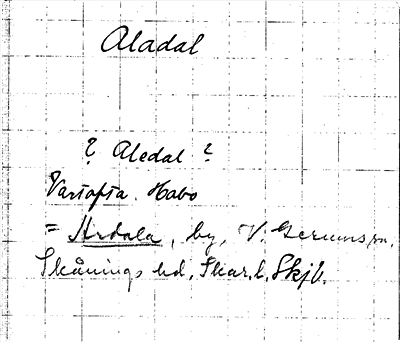 Aladal
? Aledal ?
Vartofta. Habo
= Ardala, by, V. Gerums sn.
Skånings hd, Skar. l. Skjb.